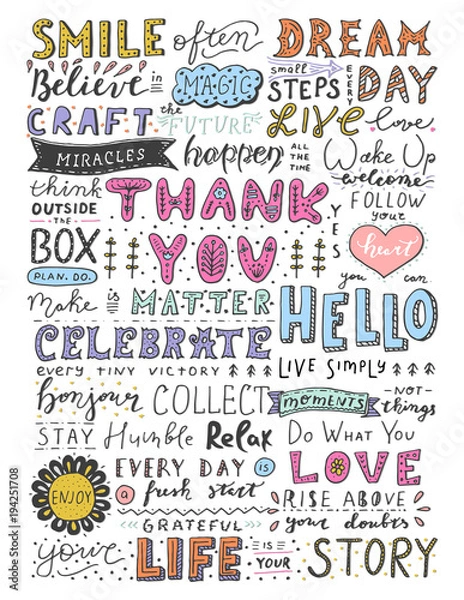 SMILE often DREAM
Believe in MAGIC small STEPS EVERY DAY
CRAFT the FUTURE LIVE love
MIRACLES happen ALL THE TIME Wake Up
welcome
think OUTSIDE THE BOX
THANK YOU
YES
FOLLOW your heart
PLAN. DO.
you can
make is MATTER HELLO
CELEBRATE
every TINY VICTORY LIVE SIMPLY
bonjour COLLECT moments -NOT- things
STAY Humble Relax Do What You LOVE
ENJOY
EVERY DAY is a fresh start
RISE ABOVE your doubts
GRATEFUL
you're LIFE IS YOUR STORY
Adobe Stock | #194251708